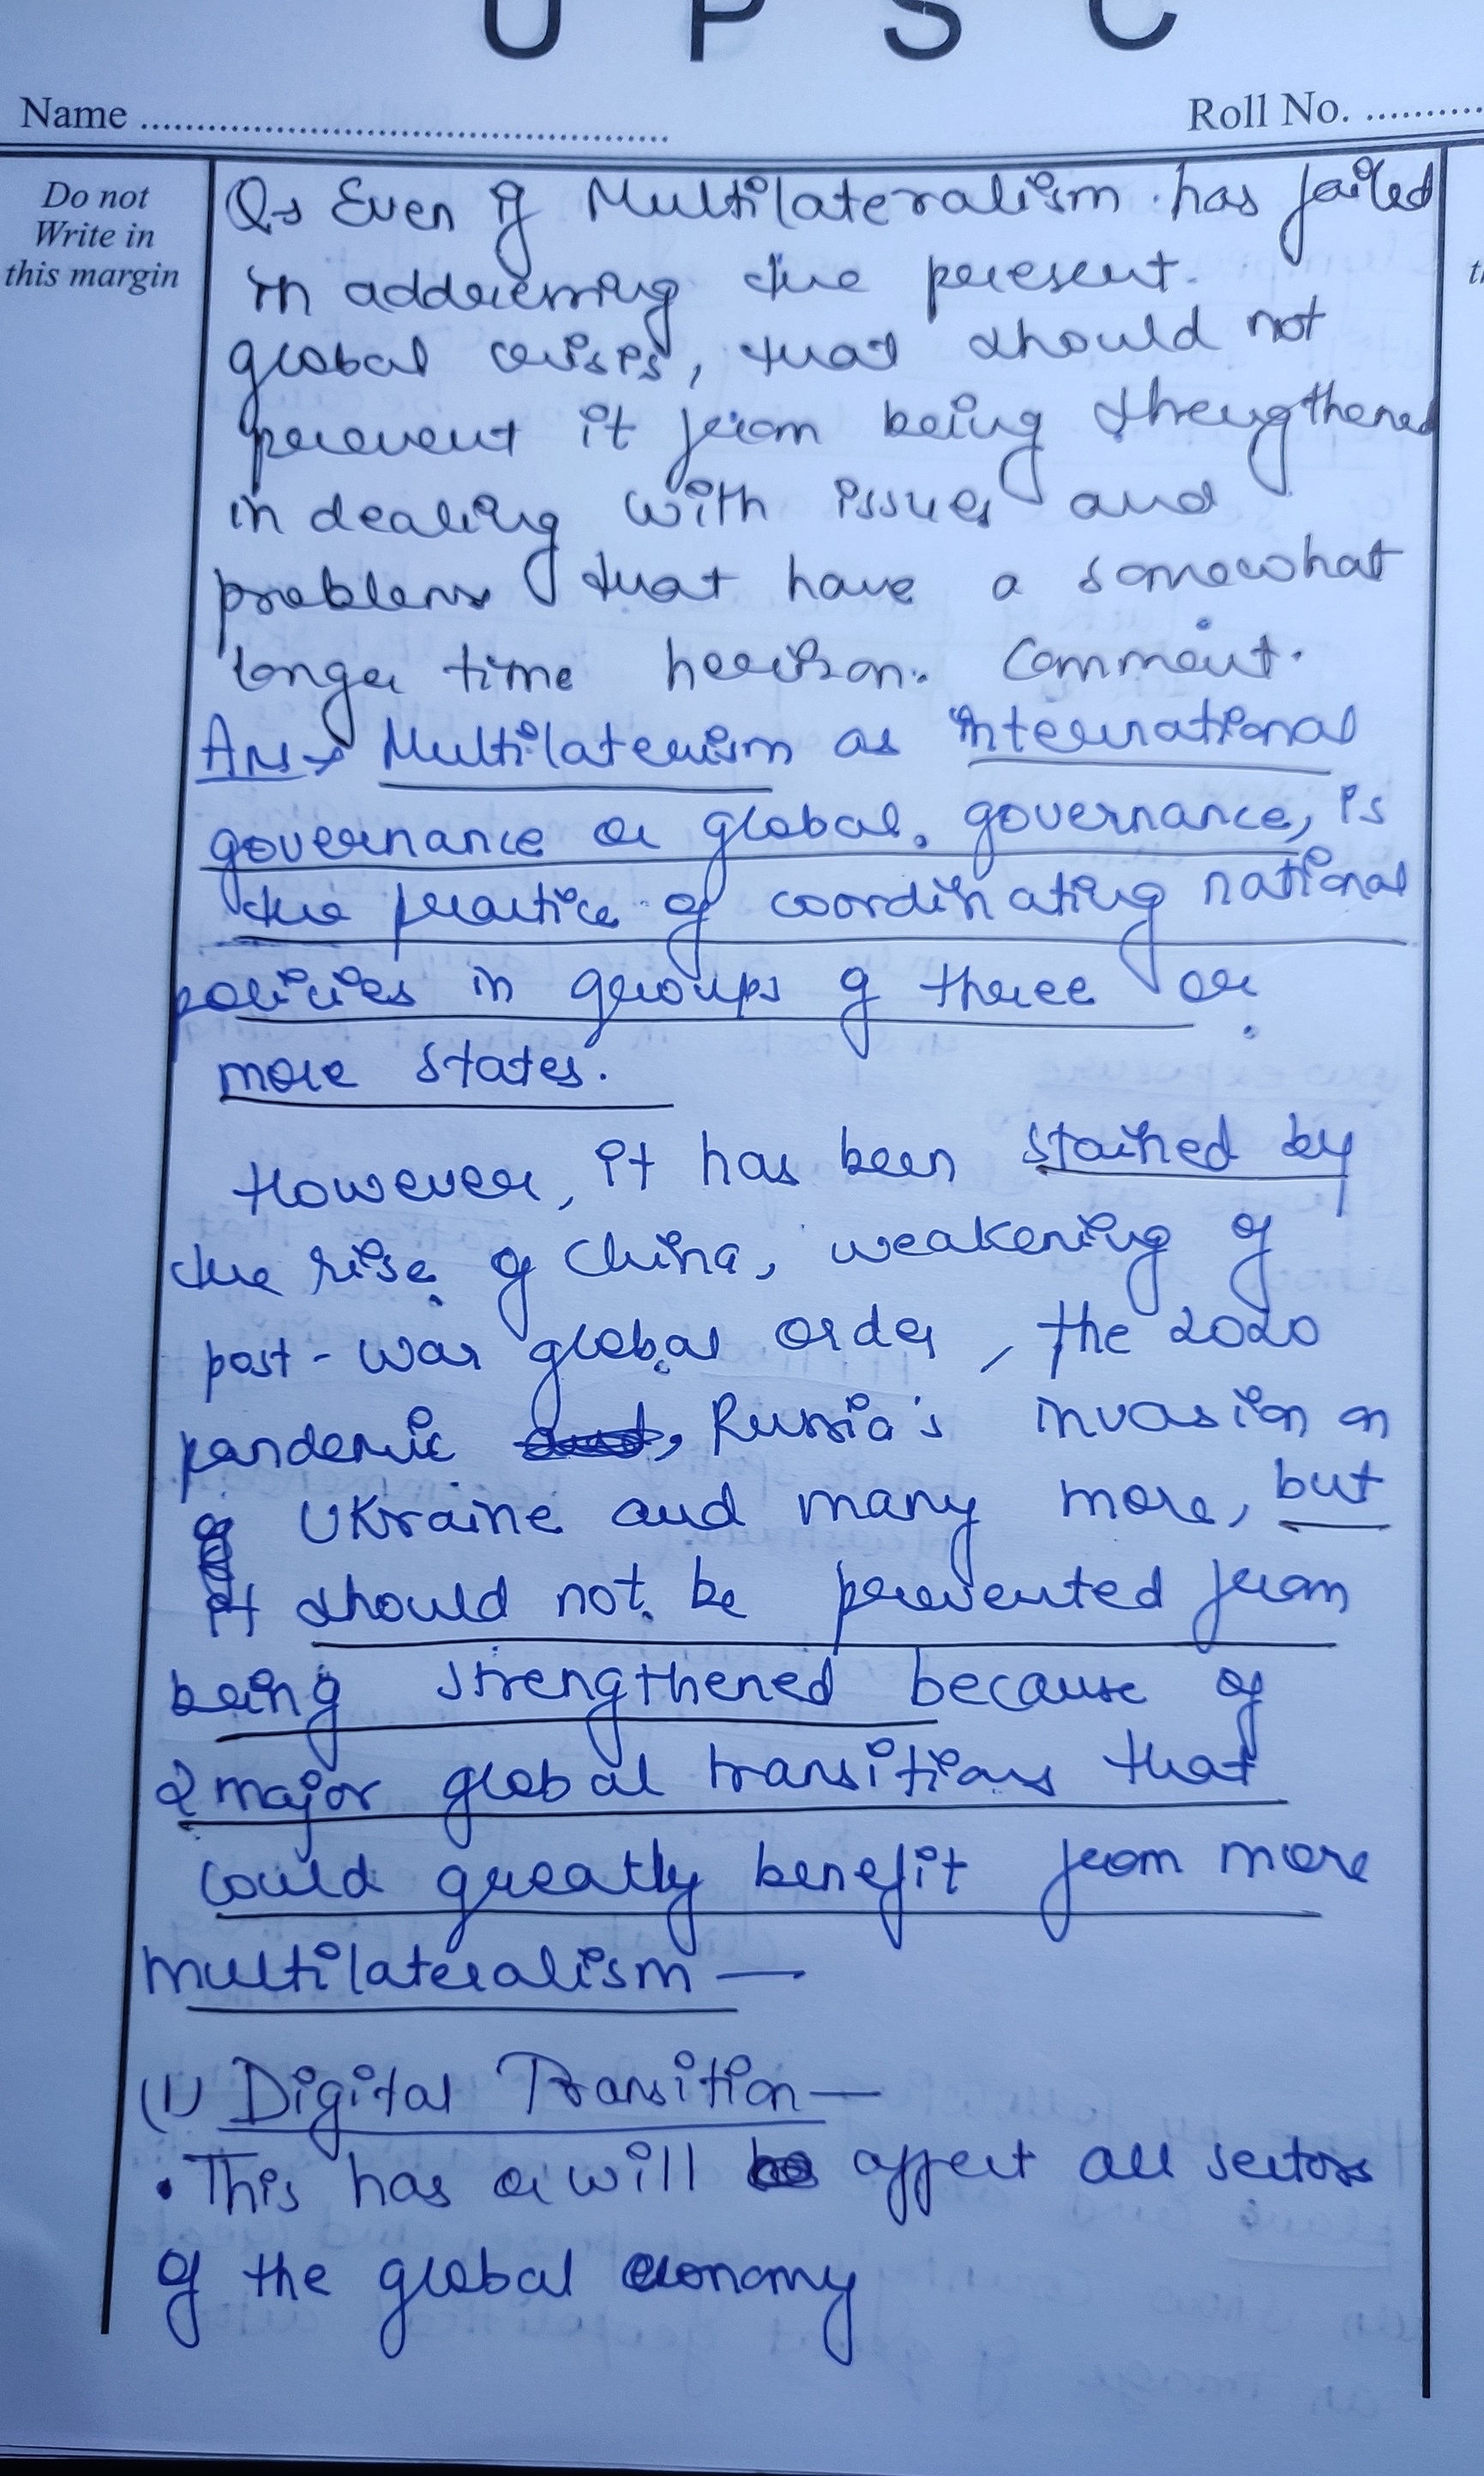 U P S C
Name ........................................................ Roll No. ..........
Do not
Write in
this margin
Q→ Even if Multilateralism has failed
in addressing the present
global crisis, that should not
prevent it from being strengthened
in dealing with issues and
problems that have a somewhat
longer time horizon. Comment.
Ans→ Multilaterism as international
governance or global governance, is
the practice of coordinating national
policies in groups of three or
more states.
However, it has been stained by
the rise of China, weakening of
post-war global order, the 2020
pandemic, Russia's invasion on
Ukraine and many more, but
it should not be prevented from
being strengthened because of
2 major global transitions that
could greatly benefit from more
multilateralism —
(1) Digital Transition —
• This has or will affect all sectors
of the global economy